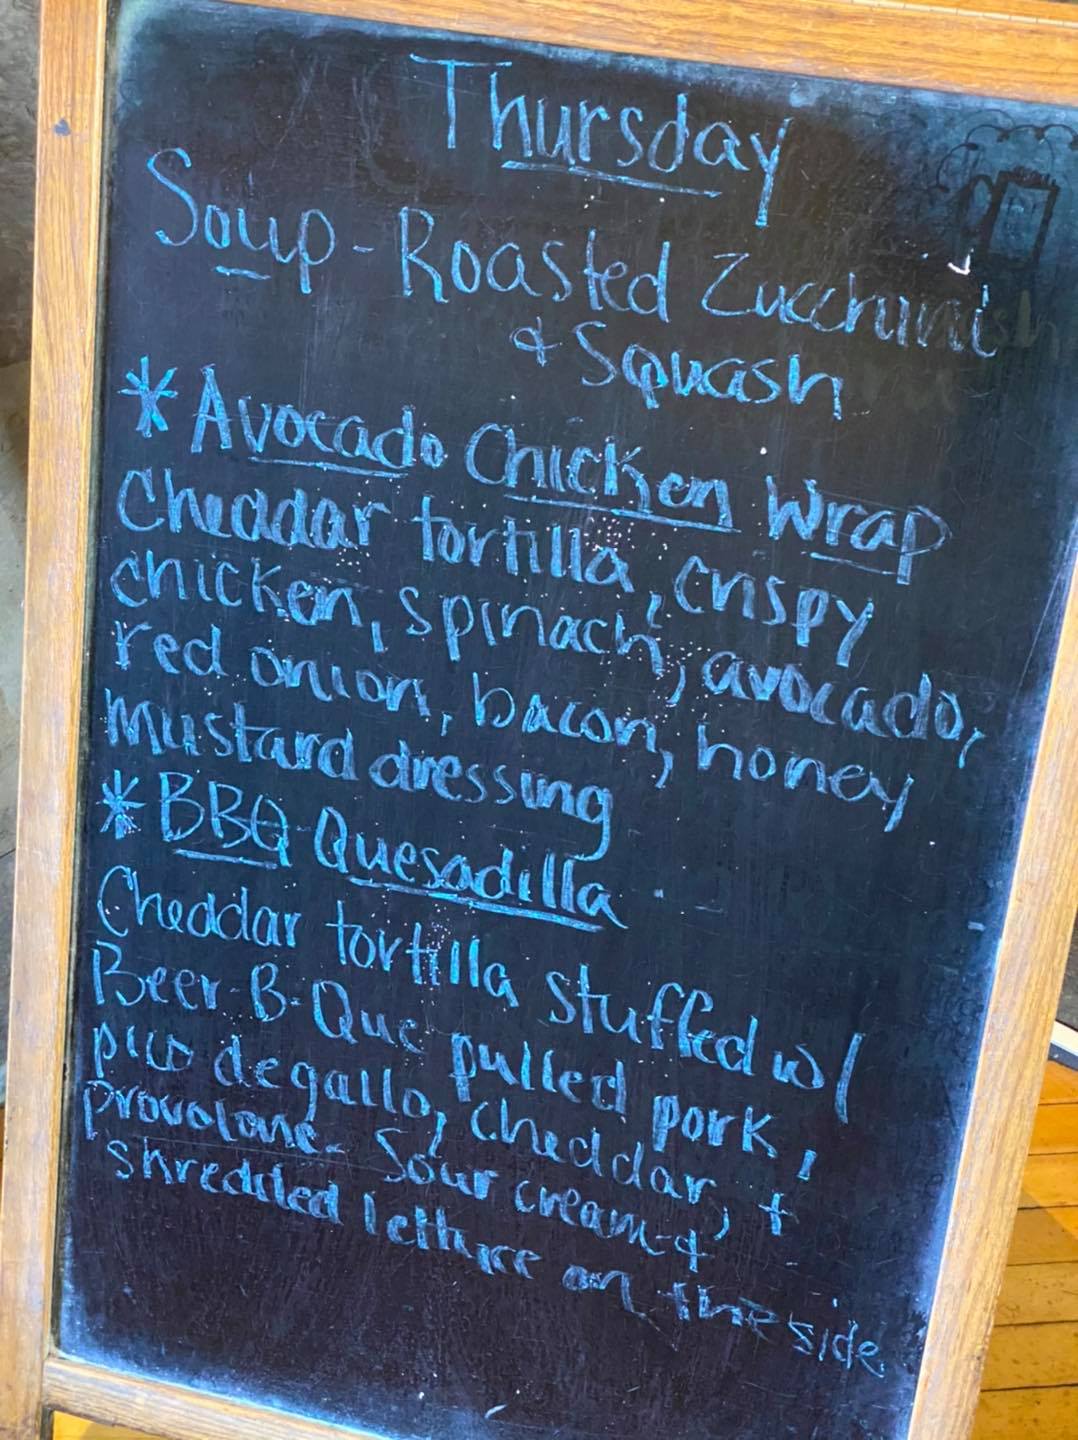 Thursday
Soup - Roasted Zucchini
& Squash
* Avocado Chicken Wrap
Cheddar tortilla, crispy
chicken, spinach, avocado,
red onion, bacon, honey
mustard dressing
* BBQ Quesadilla
Cheddar tortilla stuffed w/
Beer-B-Que pulled pork,
pico de gallo, cheddar, +
provolone - Sour cream +
shredded lettuce on the side